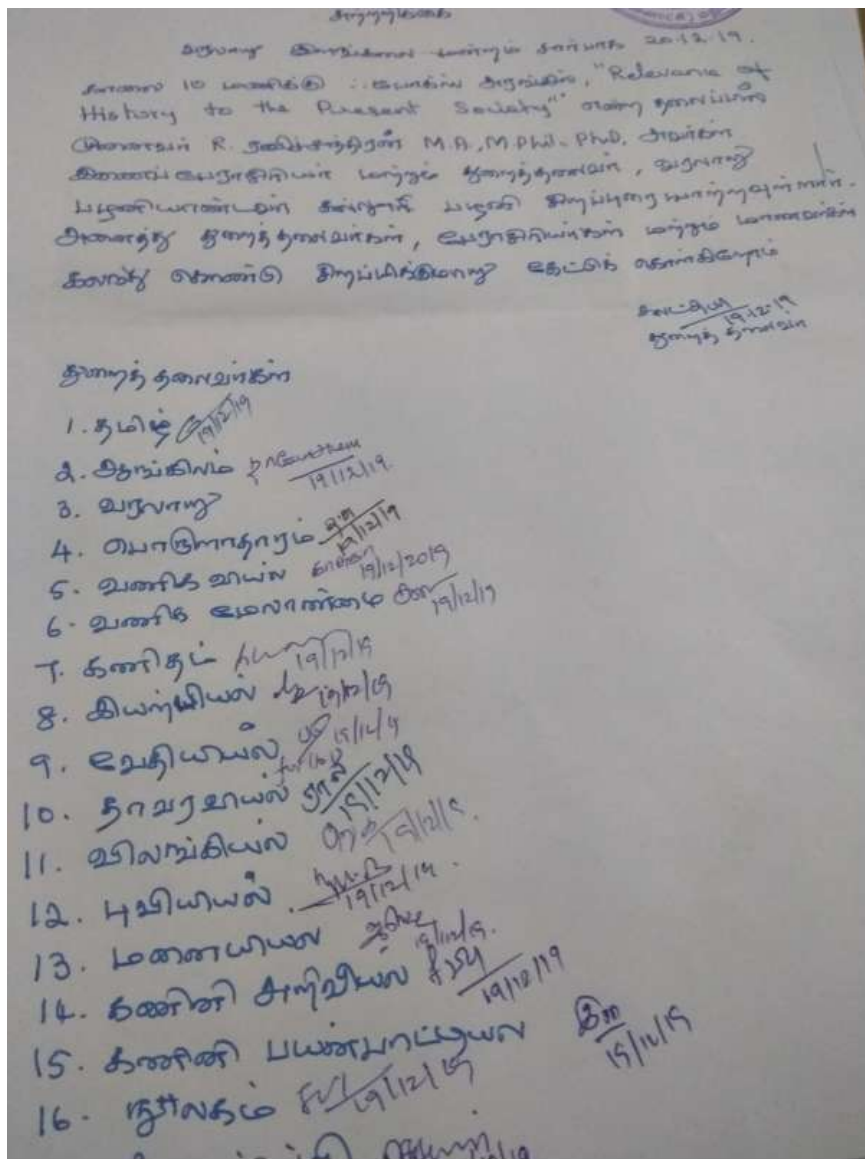 சுற்றறிக்கை
வரலாறு இளங்கலை மன்றம் சார்பாக 20.12.19.
காலை 10 மணிக்கு அரங்கில், "Relevance of
History to the Present Society" என்ற தலைப்பில்
முனைவர் R. ரவிச்சந்திரன் M.A, M.Phil., Ph.D, அவர்கள்
இணைப் பேராசிரியர் மற்றும் துறைத்தலைவர், வரலாறு
பழனியாண்டவர் கல்லூரி பழனி சிறப்புரையாற்றவுள்ளார்.
அனைத்து துறைத்தலைவர்கள், பேராசிரியர்கள் மற்றும் மாணவர்கள்
கலந்து கொண்டு சிறப்பிக்குமாறு கேட்டுக் கொள்கிறோம்
19.12.19
துறைத் தலைவர்
துறைத் தலைவர்கள்
1. தமிழ் 19/12/19
2. ஆங்கிலம் 19/12/19
3. வரலாறு
4. பொருளாதாரம் 19/12/19
5. வணிகவியல் 19/12/2019
6. வணிக மேலாண்மை 19/12/19
7. கணிதம் 19/12/19
8. இயற்பியல் 19/12/19
9. வேதியியல் 19/12/19
10. தாவரவியல் 19/12/19
11. விலங்கியல் 19/12/19.
12. புவியியல் 19/12/19.
13. மனையியல் 19/12/19.
14. கணினி அறிவியல் 19/12/19
15. கணினி பயன்பாட்டியல் 19/12/19
16. நூலகம் 19/12/19